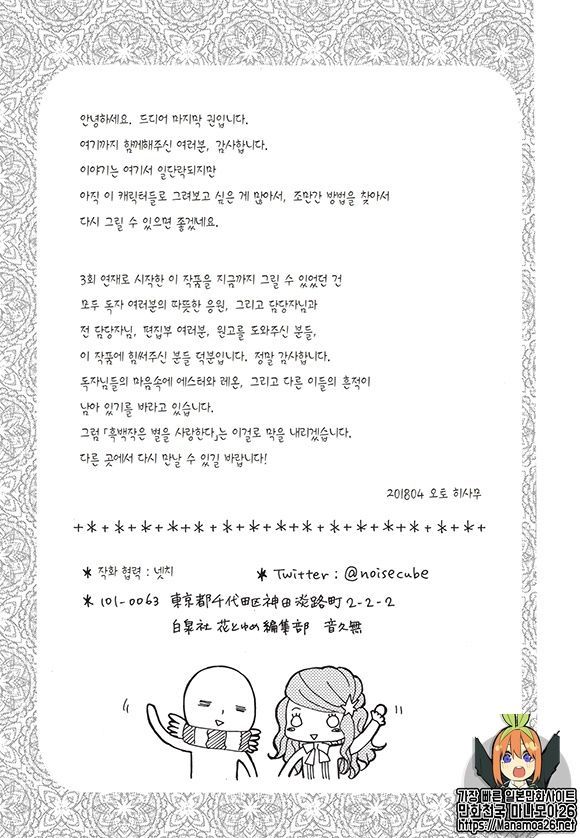 안녕하세요. 드디어 마지막 권입니다.
여기까지 함께해주신 여러분, 감사합니다.
이야기는 여기서 일단락되지만
아직 이 캐릭터들로 그려보고 싶은 게 많아서, 조만간 방법을 찾아서
다시 그릴 수 있으면 좋겠네요.
3회 연재로 시작한 이 작품을 지금까지 그릴 수 있었던 건
모두 독자 여러분의 따뜻한 응원, 그리고 담당자님과
전 담당자님, 편집부 여러분, 원고를 도와주신 분들,
이 작품에 힘써주신 분들 덕분입니다. 정말 감사합니다.
독자님들의 마음속에 에스터와 레온, 그리고 다른 이들의 흔적이
남아 있기를 바라고 있습니다.
그럼 「흑백작은 별을 사랑한다」는 이걸로 막을 내리겠습니다.
다른 곳에서 다시 만날 수 있길 바랍니다!
201804 오토 히사무
+*+*+*+*+*+*+*+*+*+*+*+*+*+*+
* 작화 협력 : 넷치
* Twitter : @noisecube
* 101-0063 東京都千代田区神田淡路町2-2-2
白泉社 花とゆめ編集部 音久無
가장 빠른 일본만화사이트
만화천국 마나모아26
https://Manamoa26.net